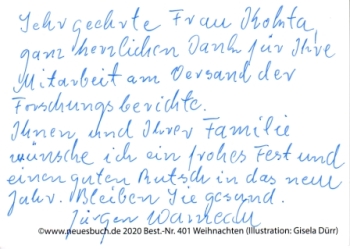 Sehr geehrte Frau Kohnta,
ganz herzlichen Dank für Ihre
Mitarbeit am Versand der
Forschungsberichte.
Ihnen und Ihrer Familie
wünsche ich ein frohes Fest und
einen guten Rutsch in das neue
Jahr. Bleiben Sie gesund.
Jürgen
©www.neuesbuch.de 2020 Best.-Nr. 401 Weihnachten (Illustration: Gisela Dürr)